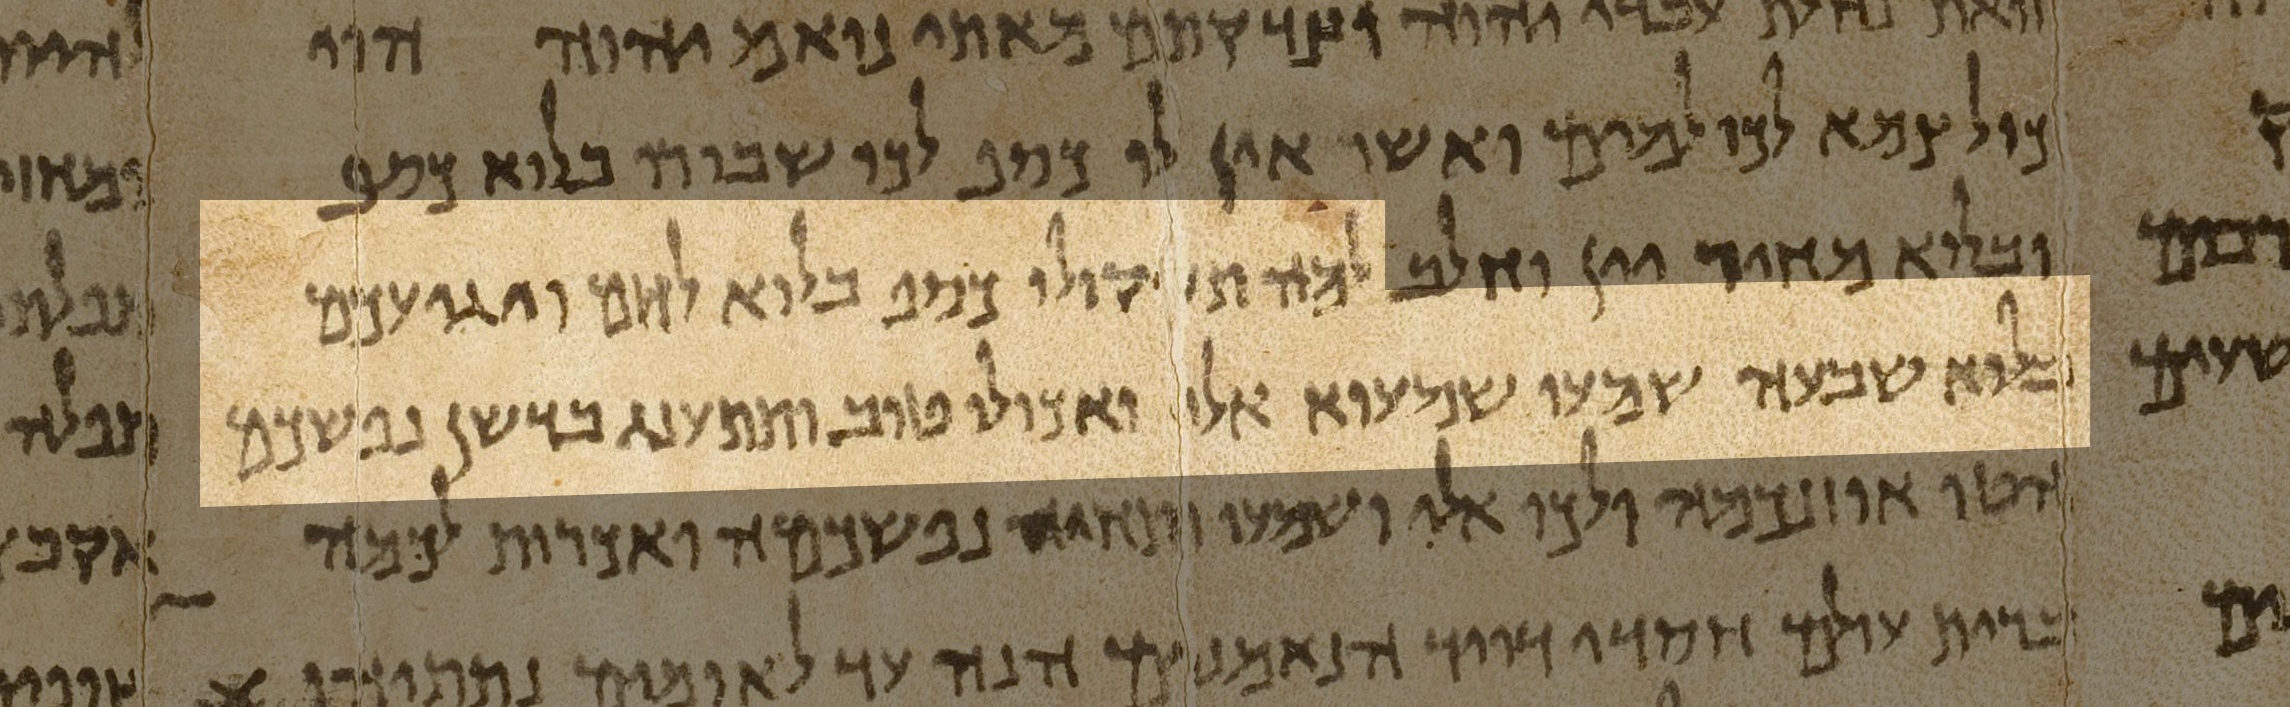 זואת נחלת עבדי יהוה וצדקתם מאתי נואם יהוה הוי
כול צמא לכו למים ואשר אין לו כסף לכו שבורו בלוא כסף
ובלוא מחיר יין וחלב למה תשקולו כסף בלוא לחם ויגיעכם
בלוא שבעה שמעו שמעוא אלי ואכולו טוב ותתענג בדשן נפשכם
הטו אוזנכמה ולכו אלי ושמעו ותחיה נפשכמה ואכרות לכמה
ברית עולם חסדי דויד הנאמנים הנה עד לאומים נתתיהו